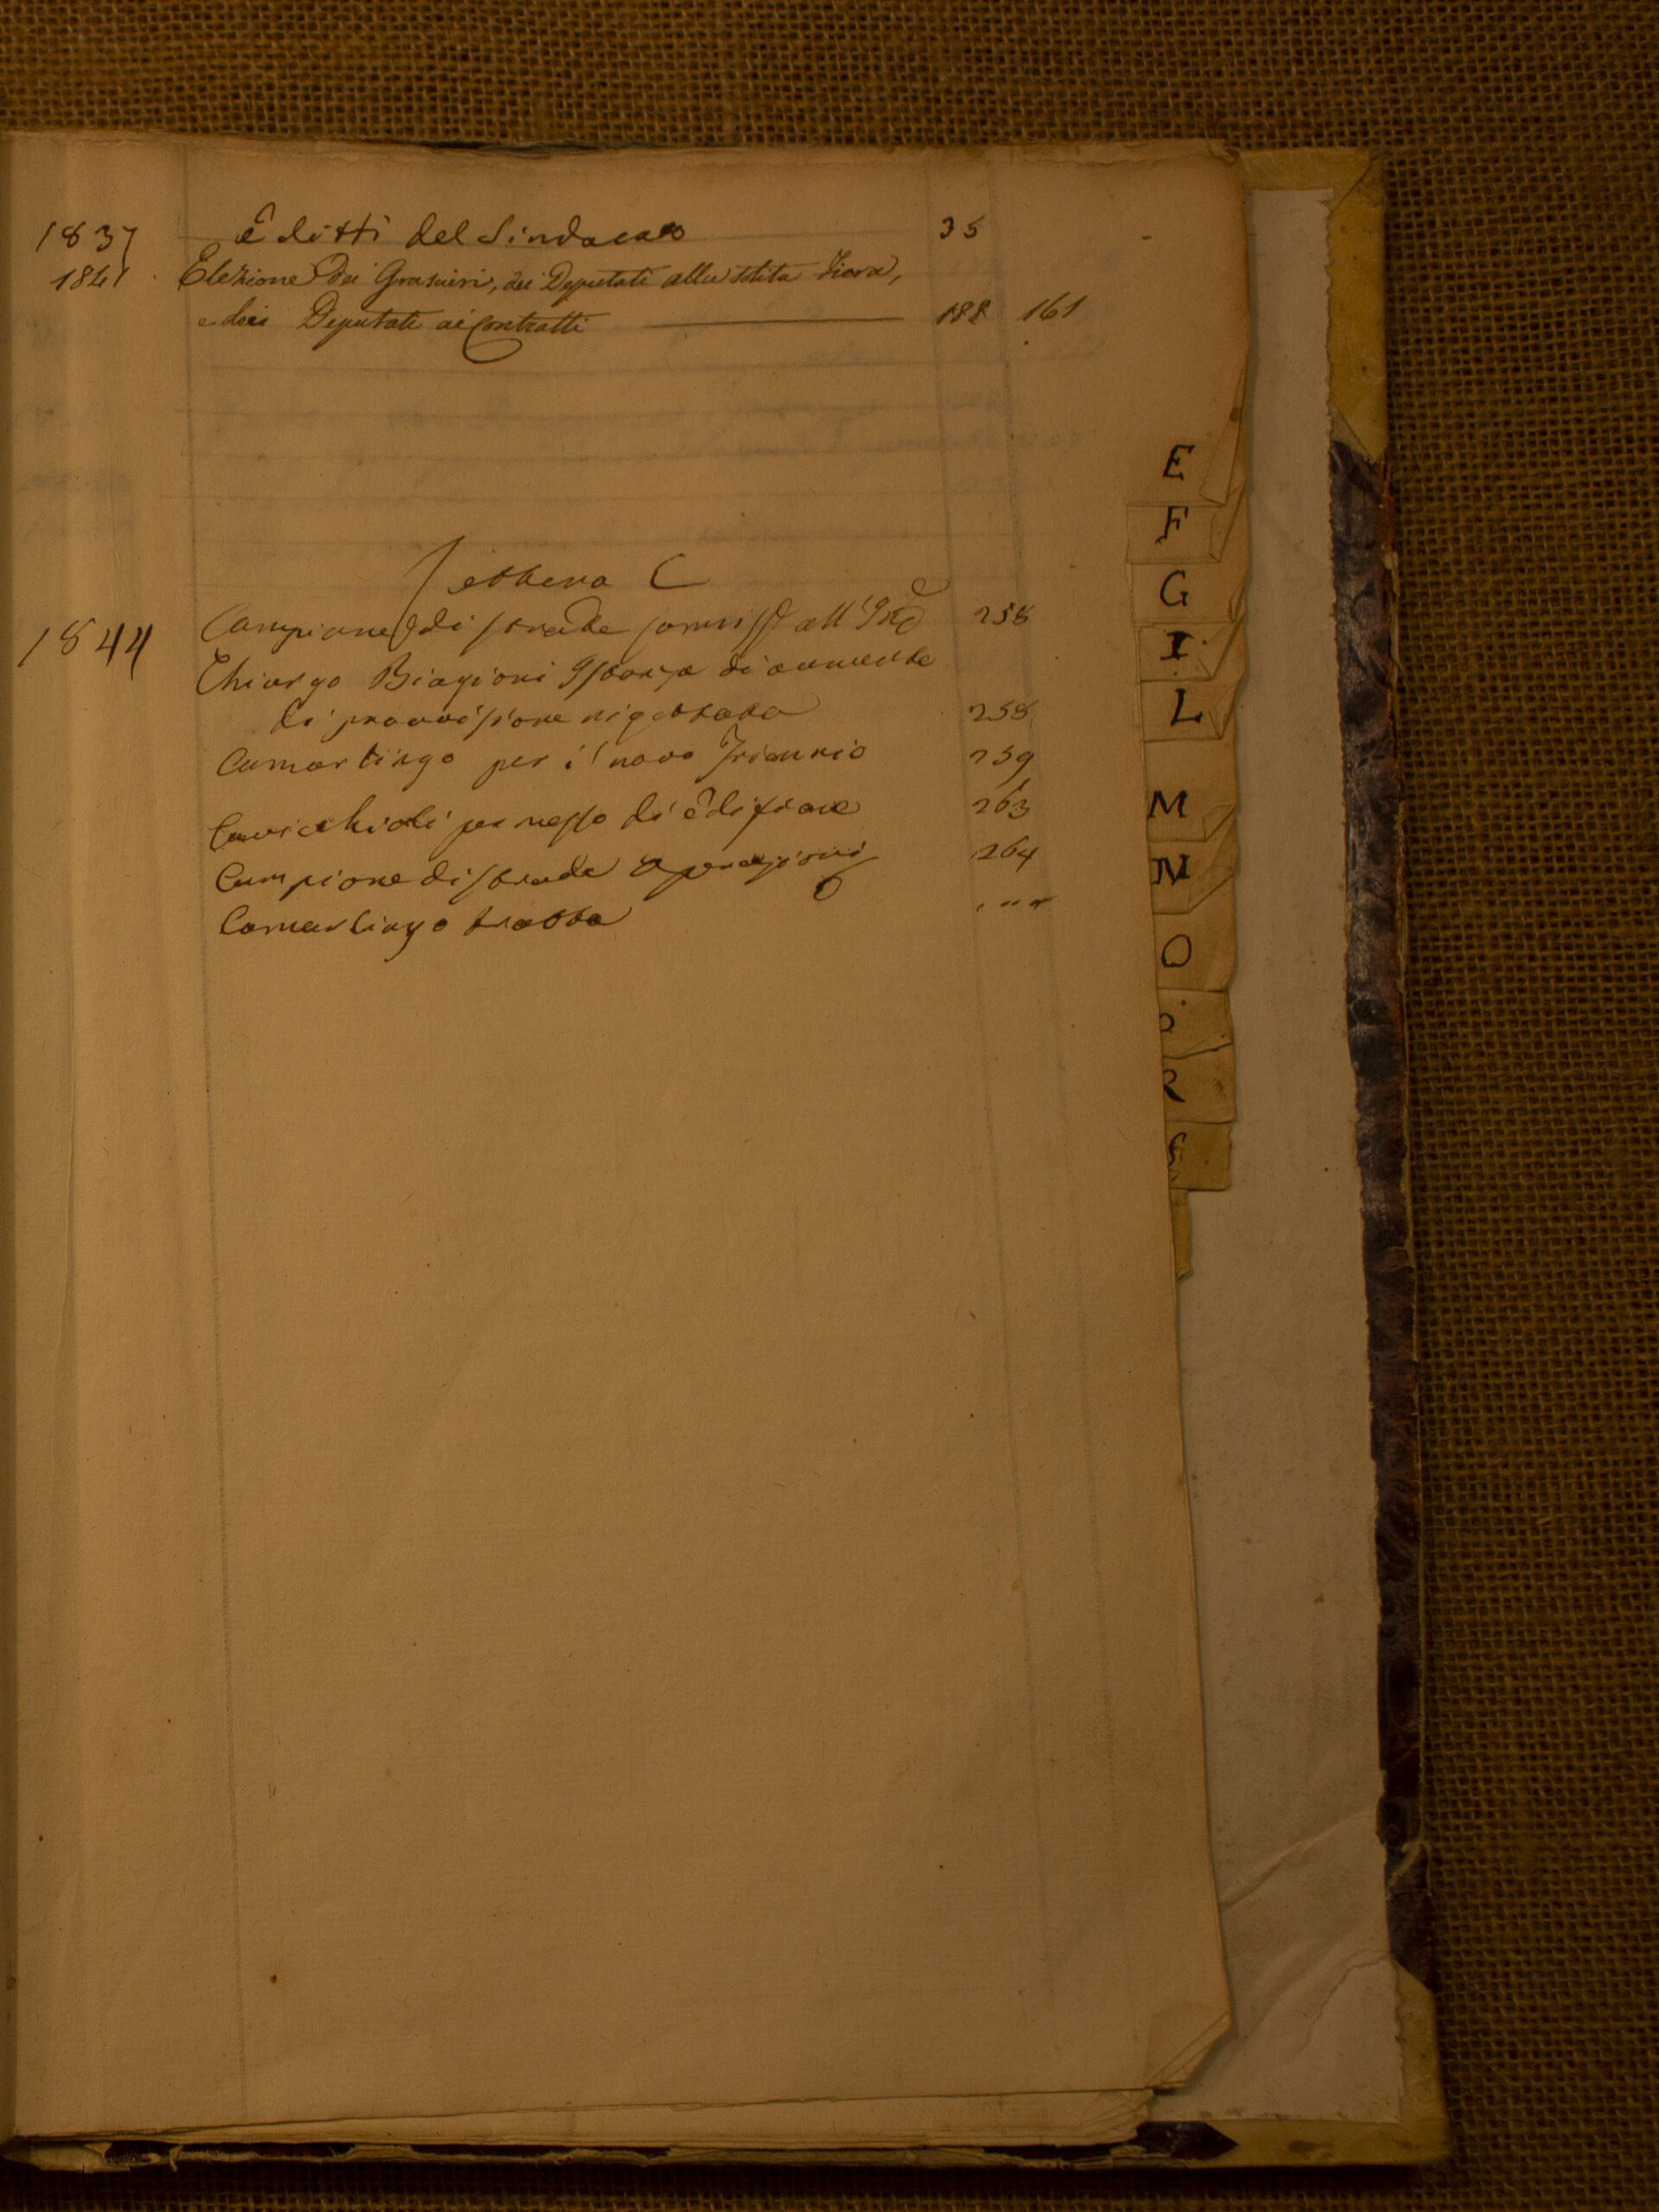 1837 Editti del Sindacato 35
1841 Elezione dei Grascieri, dei Deputati alla solita Fiera,
e dei Deputati ai Contratti 188 161
Lettera C
1844 Campione di strade all' 258
Chirurgo Biagioni Istanza di aumento
di provvisione rigettata 258
Camarlingo per il novo Triennio 259
Cavicchioli permesso di 263
Campione di strade 264
Camarlingo tratta " " "
E
F
G
I
L
M
N
O
R
S